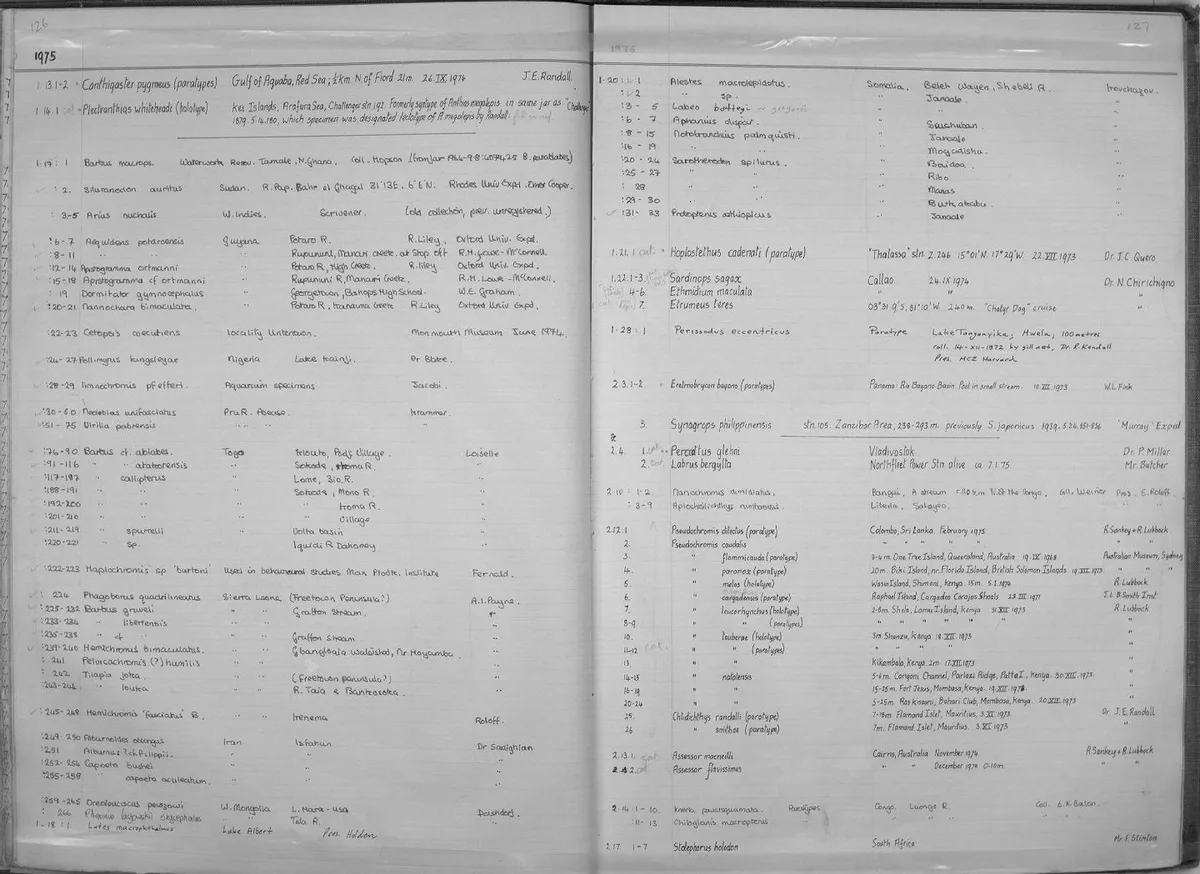 126
1975
1.13.1-2 Canthigaster pygmeus (paratypes) Gulf of Aquaba, Red Sea; ½ km. N. of Fiord 21m. 26.IX.1974 J.E. Randall.
1.14.1 Plectranthias whiteheadi (holotype) Kei Islands, Arafura Sea, Challenger stn 192. Formerly syntype of Anthias megalepis in same jar as "Challenger"
1879.5.14.180, which specimen was designated lectotype of A. megalepis by Randall
1.17: 1 Barbus macrops. Waterworks Resev. Tamale, N. Ghana. Coll. Hopson
: 2. Siluranodon auritus Sudan. R. Pap. Bahr el Ghazal Rhodes Univ Expd. Omer Cooper.
: 3-5 Arius nuchalis W. Indies. Scrivener. (old collection, prev. unregistered.)
:6-7 Aequidens potaroensis Guyana Potaro R. R. Liley, Oxford Univ. Expd.
:8-11 " " Rupununi, Manari Creek. at Stop off R.H. Lowe-McConnell
:12-14 Apistogramma ortmanni " Potaro R, High Creek. R. Liley Oxford Univ. Expd.
:15-18 Apistogramma cf ortmanni " Rupununi R, Manari Creek. R.H. Lowe-McConnell.
: 19 Dormitator gymnocephalus " Georgetown, Bishops High School. W.E. Graham.
:20-21 Nannochara bimaculata. " Potaro R. Creek R Liley Oxford Univ Expd.
:22-23 Cetopsis coecutiens locality Unknown. Monmouth Museum June 1974.
:24-27 Pollimyrus kingsleyae Nigeria Lake Kainji Dr Blake.
:28-29 limnochromis pfefferi. Aquarium specimens Jacobi.
:30-50 Neolebias unifasciatus Pru R. Abease. Krammer.
:51-75 Virilia pabrensis " " " "
:76-90 Barbus cf. ablabes. Togo Village. Loiselle
:91-116 " " Sokode, R.
:117-187 " callipterus " Lome, Sio R.
:188-191 " " " Sokode, Mono R.
:192-200 " " "
:201-210 " " " Village
:211-219 " spurrelli " Volta basin
:220-221 " sp. " Dahomey
:222-223 Haplochromis sp 'burtoni' used in behavioural studies Max Planck. Institute Fernald.
: 224 Phagoborus quadrilineatus Sierra Leone. (Freetown Peninsula?) A.I. Payne.
:225-232 Barbus gruveli " Grafton Stream.
:233-234 " liberiensis " "
:235-238 " cf " Grafton Stream
:239-240 Hemichromis bimaculatus. " Gbangbaia Watershed, Nr Moyamba.
: 241 Pelvicachromis (?) humilis " "
: 242 Tilapia joka. " (Freetown peninsula?)
:243-244 " louka " R. Taia &
:245-248 Hemichromis 'fasciatus' B. " Kenema Roloff.
:249-250 Alburnoides Iran Isfahan Dr Sadighian
:251 Alburnus ? cf. filippii. " "
:252-254 Capoeta buhsei " "
:255-258 " capoeta aculeatum. " "
:259-265 Oreoleuciscus W. Mongolia L. Hara-usa Dashdorj.
: 266 Phoxinus Tula R.
1-18: 1. Lates macrophthalmus Lake Albert Pres Holden
127
1975
1-20: 1 Alestes macrolepidotus Somalia. Belet Wayen, Shebeli R.
: 2 " sp. " Janaale.
:3 - 5 Labeo bottegi " "
:6 - 7 Aphanius dispar. "
:8 - 15 Notobranchius palmquisti. " Janaale
:16 - 19 " " Mogadisha.
:20 - 24 Sarotherodon spilurus. " Baidoa.
:25 - 27 " " " Ribo
: 28 " " "
:29 - 30 " " "
:31 - 33 Protopterus aethiopicus " Janaale
1.21.1 Hoplostethus cadenati (paratype) "Thalassa" stn Z.246 15°01'N. 17°29'W. 22.VIII.1973 Dr. J.C. Quero
1.22.1-3 Sardinops sagax Callao. 24.IX.1974 Dr. N. Chirichigno
4-6 Ethmidium maculata " " "
7. Etrumeus teres 03°31.9'S, 81°10'W. 240m. cruise "
1-28: 1 Perissodus eccentricus Paratype Lake Tanganyika, Mwela; 100 metres
coll. 14-XII-1972 by gill net, Dr. R. Kendall
Pres. MCZ Harvard
2.3.1-2. Eretmobrycon bayano (paratypes) Panama: Rio Bayano Basin. Pool in small stream. 1973 W.L. Fink
3. Synagrops philippinensis stn. 105. Zanzibar Area, 238-293m. previously S. japonicus 1939.5.24.851-856 'Murray' Exped
2.4. 1. Percottus glehni Vladivostok Dr. P. Miller
2. Labrus bergylta Northfleet Power Stn alive ca. 7.1.75 Mr. Batcher
2.10: 1-2. Nanochromis dimidiatus. Bangui, A stream N. of the Congo. Coll. Weiner Pres. E. Roloff.
: 3-9 Aplocheilichthys Liberia, "
2.12.1 Pseudochromis dilectus (paratype) Colombo, Sri Lanka. February 1975 R. Sankey & R. Lubbock
2. Pseudochromis caudalis " " " "
3. " flammicauda (paratype) 3-4m. One Tree Island, Queensland, Australia 1968 Australian Museum, Sydney
4. " paranox (paratype) 20m. Biki Island, nr. Florida Island, British Solomon Islands 1973 " "
5. " melas (holotype) Wasin Island, Shimoni, Kenya. 15m. 5.I.1974 R. Lubbock
6. " cargadensis (paratype) Raphael Island, Cargados Carajos Shoals 1971 J.L.B. Smith Inst.
7. " leucorhynchus (holotype) 2-8m. Shela, Lamu Island, Kenya. 1973 R. Lubbock
8-9 " " (paratypes) " " " " "
10. " louberae (holotype) 3m Shanzu, Kenya 1973 "
11-12 " " (paratypes) " " "
13. " " Kikambala, Kenya 2m. 17.XII.1973 "
14-15 " natalensis 5-6m. Canyoni Channel, Patta I., Kenya. 1973. "
16-19 " " 15-25m. Fort Jesus, Mombasa, Kenya. "
20-24 " " 5-25m. Ras Kisauni, Bahari Club, Mombasa, Kenya. 20.XII.1973 "
25. Chlidichthys randalli (paratype) 7-15m. Flamand Islet, Mauritius, 3.XI.1973 Dr J.E. Randall
26 " smithae (paratype) 7m. Flamand Islet, Mauritius. 3.XI.1973 "
2.13.1. Assessor macneilli Cairns, Australia November 1974 R. Sankey & R. Lubbock
2. Assessor flavissimus " " December 1974 0-10m. "
2.14: 1-10. Kneria paucisquamata. Paratypes Congo. Luongo R. Coll. E.K. Balon.
: 11-13 Chiloglanis macropterus " " "
2.17. 1-7 Stolephorus holodon South Africa Mr F. Stinton